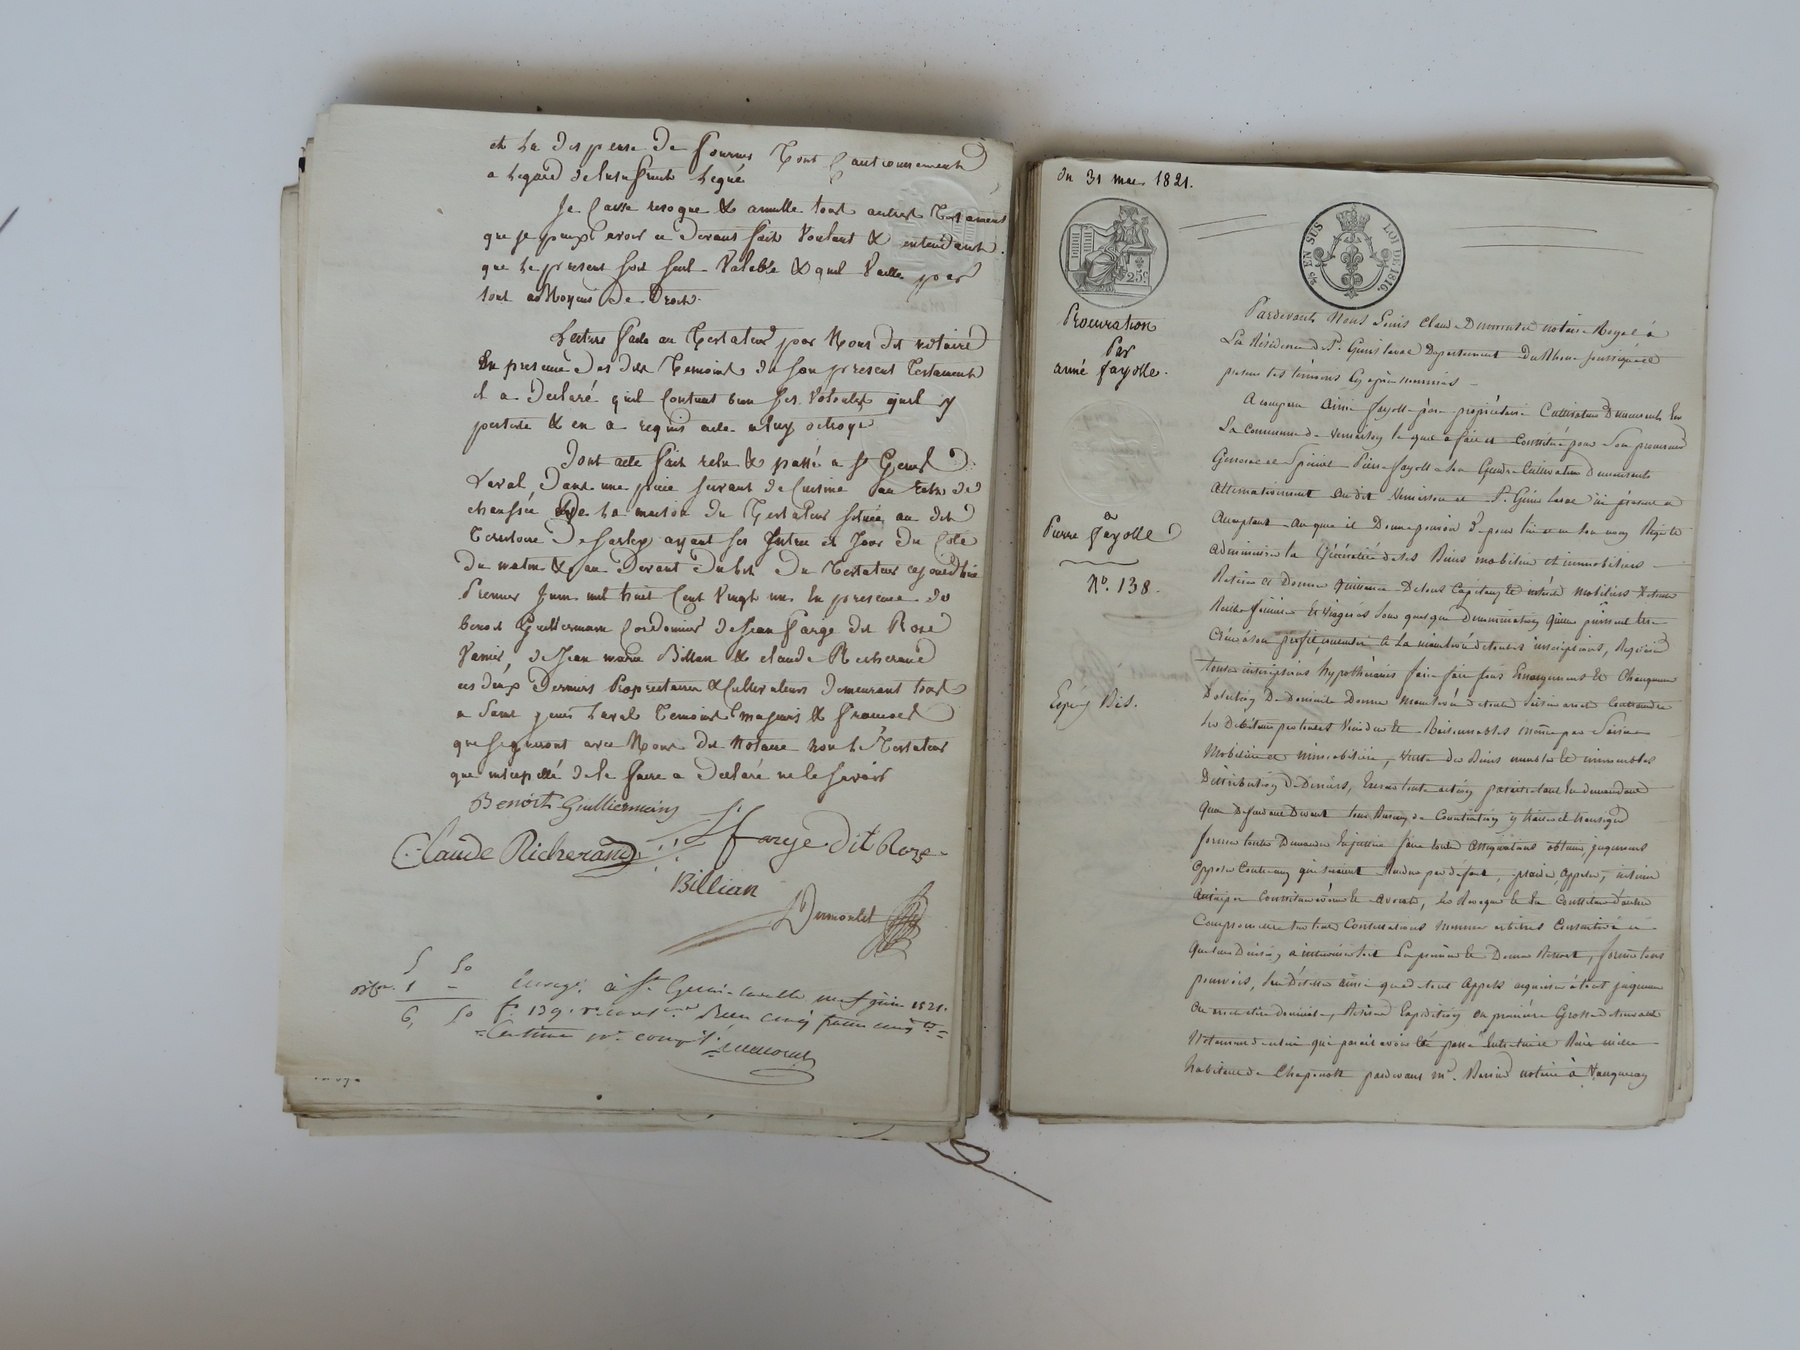 et la dispense de fournir tout Cautionnement
a legard de lusufruit legué
Je Casse revoque & annulle tout autres testament
que je peux avoir ci devant fait Voulant & entendant
que le present soit seul Valable & quil Vaille par
tout as Moyens de Droit.
Lecture faite au Testateur par Nous dit notaire
En presence des dits Temoins de son present Testament
il a Declaré quil Contient bien ses Volontés quil y
persiste & en a requis acte a luy octroyé
Dont acte fait relu & passé a St Genis
Laval Dans une piece servant de Cuisine au rets de
chaussée de la maison du Testateur située au dit
Territoire de ayant ses Entrée et Jour du Coté
du matin & au devant du lit du Testateur cejourdhui
Premier Juin mil huit Cent Vingt un En presence de
benoit Guilliermain Cordonnier de Jean Farge dit Rose
de Jean marie Billian & claude Richerand
ces deux Derniers Proprietaires & Cultivateurs Demeurant tous
a Saint genis Laval Temoins majeurs & francois
qui signeront avec Nous dit Notaire non le Testateur
qui interpellé de le faire a Declaré ne le savoir
Benoit Guilliermain
Claude Richerand J farge dit Roze
Billian
Dumortet
5 50
1 -
6, 50
Enregé à St Genis-laval le neuf juin 1821.
fo 139. Reçu cinq francs cinqte
Centimes
du 31 mai 1821.
25c.
EN SUS
LOI DE 1816.
Procuration
Par
aimé fayolle.
a
Pierre fayolle
No. 138.
Expey Bis.
Pardevant Nous Louis Claude Dumortet notaire Royal à
La Résidence de St. Genis laval Departement Du Rhône soussigné et
présens les témoins Cy après nommés
A comparu Aimé fayolle père propriétaire Cultivateur Demeurant En
La Commune de Vernaison lequel a fait et Constitué pour Son procureur
General et Spécial Pierre fayolle son Gendre Cultivateur Demeurant
alternativement audit Vernaison et St. Genis laval ici présent et
acceptant auquel il Donne pouvoir de pour lui et en son nom Régir et
administrer la Généralité de ses Biens mobiliers et immobiliers
Retirer et Donner quittance De tous Capitaux et intérêts mobiliers
sous quelque Dénomination qu'ils puissent être
consentir la main levée de toutes inscriptions, Requérir
toutes inscriptions hypothécaires faire faire tous Emargemens et Changemens
D'élection De Domicile Donner Main levée de toute Saisie arret Contraindre
les Débiteurs par toutes Voies de Raisonnables même par Saisie
Mobilière et immobilière, vente des Biens meubles et immeubles
Distribution De Deniers, Exercer toute action tant En demandant
qu'En Defendant Devant tous Bureaux de Conciliation y traiter et transiger
former toutes Demandes En justice faire toutes assignations obtenir jugemens
opposer Contre ceux qui seraient Rendus par défaut, plaider, appeler,
Constituer avoués et avocats, les Révoquer et En Constituer d'autres
Compromettre sur toutes Contestations Nommer arbitres
pourvois, s'en Désister ainsi que de tous Appels acquiescer à tout jugement
Retirer Expédition En première Grosse de tous actes
Notamment celui qui parait avoir été passé
habitant de Chaponost pardevant me. notaire à Vaugneray